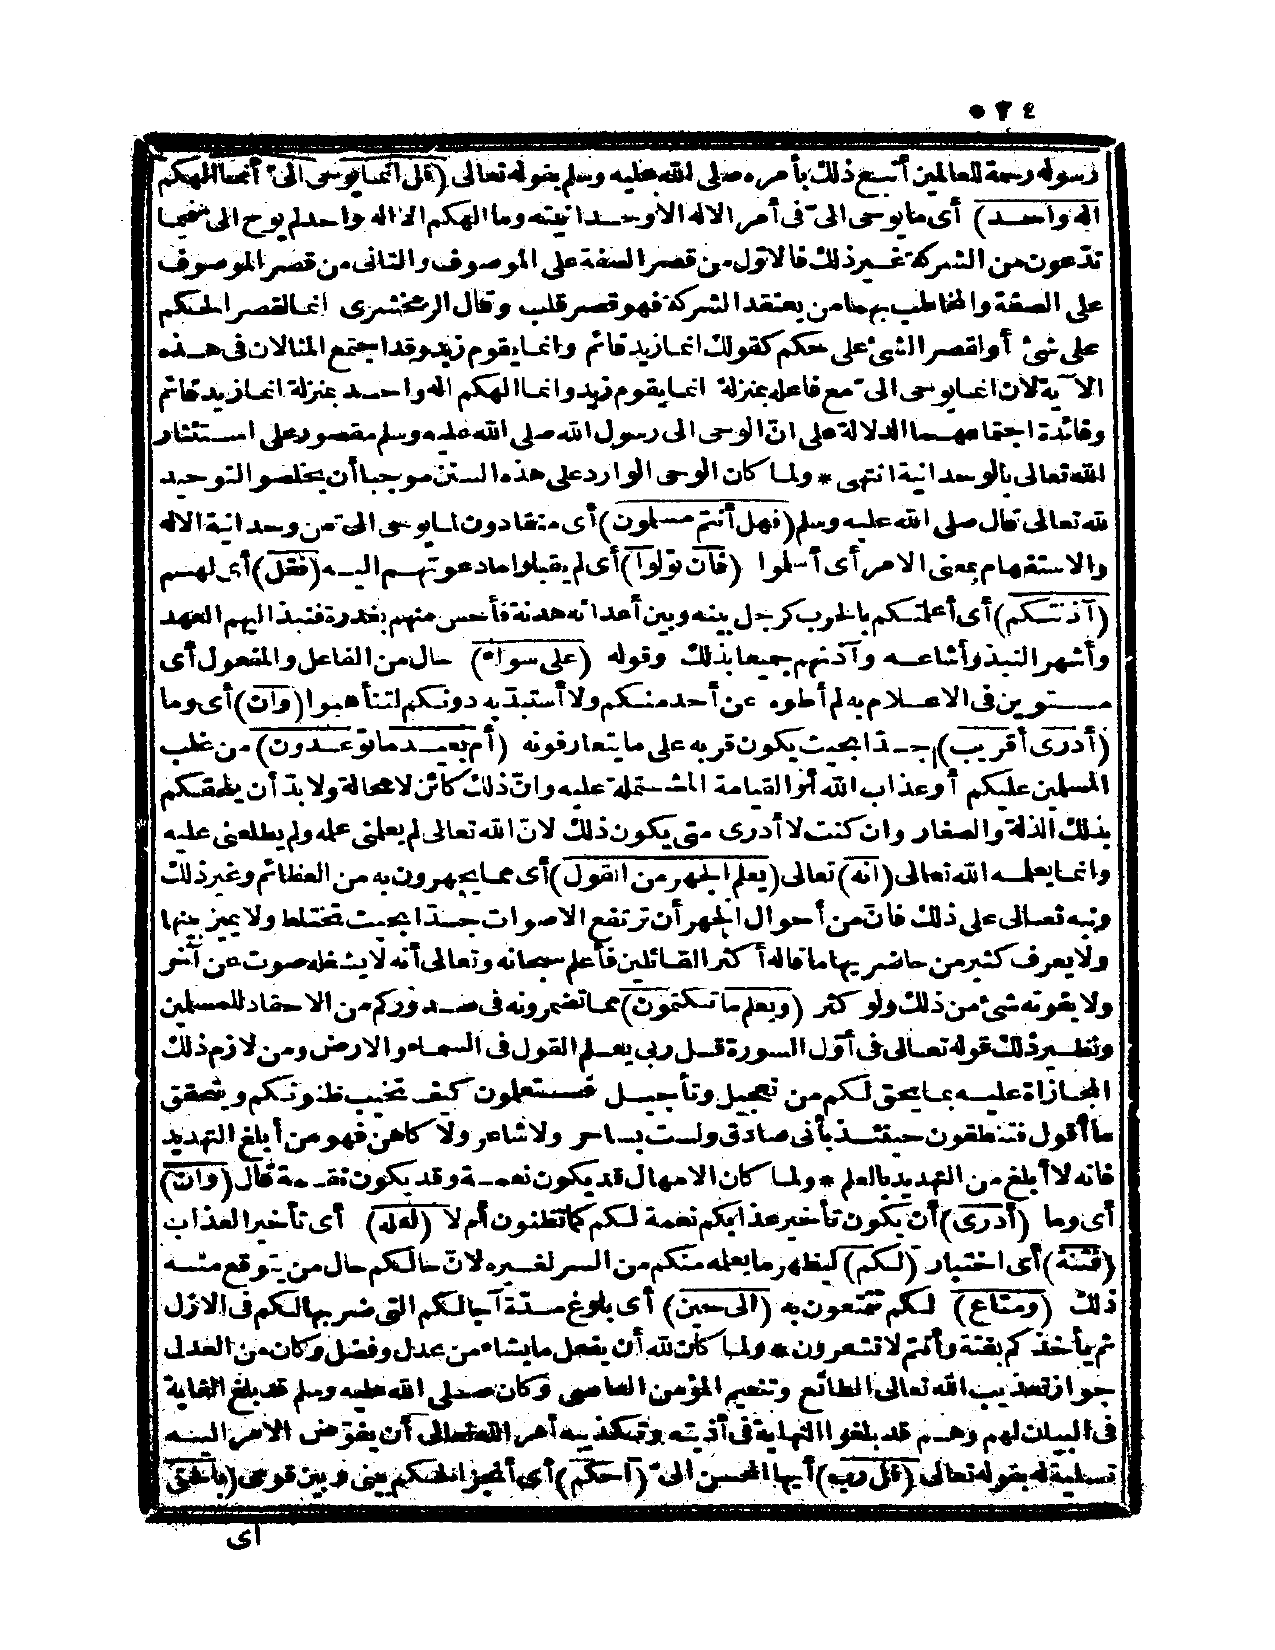 ٥٣٤
رسوله رحمة للعالمين أتبع ذلك بأمره صلى الله عليه وسلم بقوله تعالى (قل انما يوحى الىّ أنما الهكم
اله واحد) أى ما يوحى الىّ فى أمر الاله الا وحدانيته وما الهكم الا اله واحد لم يوح الىّ فيما
تدّعون من الشركة غير ذلك فالاوّل من قصر الصفة على الموصوف والثانى من قصر الموصوف
على الصفة والمخاطب بهما من يعتقد الشركة فهو قصر قلب وقال الزمخشرى انما لقصر الحكم
على شئ أو لقصر الشئ على حكم كقولك انما زيد قائم وانما يقوم زيد وقد اجتمع المثالان فى هذه
الآية لان انما يوحى الىّ مع فاعله بمنزلة انما يقوم زيد وانما الهكم اله واحد بمنزلة انما زيد قائم
وفائدة اجتماعهما الدلالة على انّ الوحى الى رسول الله صلى الله عليه وسلم مقصور على استئثار
الله تعالى بالوحدانية انتهى * ولما كان الوحى الوارد على هذه السنن موجبا أن يخلصوا التوحيد
لله تعالى قال صلى الله عليه وسلم (فهل أنتم مسلمون) أى منقادون لما يوحى الىّ من وحدانية الاله
والاستفهام بمعنى الامر أى أسلموا (فان تولوا) أى لم يقبلوا ما دعوتهم اليه (فقل) أى لهم
(آذنتكم) أى أعلمتكم بالحرب كرجل بينه وبين أعدائه هدنة فأحس منهم بغدرة فنبذ اليهم العهد
وأشهر النبذ وأشاعه وآذنهم جميعا بذلك وقوله (على سواء) حال من الفاعل والمفعول أى
مستوين فى الاعلام به لم أطوه عن أحد منكم ولا أستبدّ به دونكم لتتأهبوا (وان) أى وما
(أدرى أقريب) جدا بحيث يكون قربه على ما يتعارفونه (أم بعيد ما توعدون) من غلب
المسلمين عليكم أو عذاب الله أو القيامة المشتملة عليه وانّ ذلك كائن لا محالة ولا بدّ أن يلحقكم
بذلك الذلة والصغار وان كنت لا أدرى متى يكون ذلك لانّ الله تعالى لم يعلمنى علمه ولم يطلعنى عليه
وانما يعلمه الله تعالى (انه) تعالى (يعلم الجهر من القول) أى مما يجهرون به من العظائم وغير ذلك
ونبه تعالى على ذلك فانّ من أحوال الجهر أن ترتفع الاصوات جدا بحيث تختلط ولا يميز بينها
ولا يعرف كثير من حاضريها ما قاله أكثر القائلين فأعلم سبحانه وتعالى أنه لا يشغله صوت عن آخر
ولا يفوته شئ من ذلك ولو كثر (ويعلم ما تكتمون) مما تضمرونه فى صدوركم من الاحقاد للمسلمين
ونظير ذلك قوله تعالى فى أوّل السورة قل ربى يعلم القول فى السماء والارض ومن لازم ذلك
المجازاة عليه بما يحق لكم من تعجيل وتأجيل فستعلمون كيف تخيب ظنونكم ويتحقق
ما أقول فتنطقون حينئذ بأنى صادق ولست بساحر ولا شاعر ولا كاهن فهو من أبلغ التهديد
فانه لا أبلغ من التهديد بالعلم * ولما كان الامهال قد يكون نعمة وقد يكون نقمة قال (وان)
أى وما (أدرى) أن يكون تأخير عذابكم نعمة لكم كما تظنون أم لا (لعله) أى تأخير العذاب
(فتنة) أى اختبار (لكم) ليظهر ما يعلمه منكم من السر لغيره لانّ حالكم حال من يتوقع منه
ذلك (ومتاع) لكم تتمتعون به (الى حين) أى بلوغ مدّة آجالكم التى ضربها لكم فى الازل
ثم يأخذكم بغتة وأنتم لا تشعرون * ولما كان لله أن يفعل ما يشاء من عدل وفضل وكان من العدل
جواز تعذيب الله تعالى الطائع وتنعيم المؤمن العاصى وكان صلى الله عليه وسلم قد بلغ الغاية
فى البيان لهم وهم قد بلغوا النهاية فى أذيته وتكذيبه أمر الله تعالى أن يفوّض الامر اليه
تسلية له بقوله تعالى (قل رب) أيها المحسن الىّ (احكم) أى أنجز الحكم بينى وبين قومى (بالحق)
أى